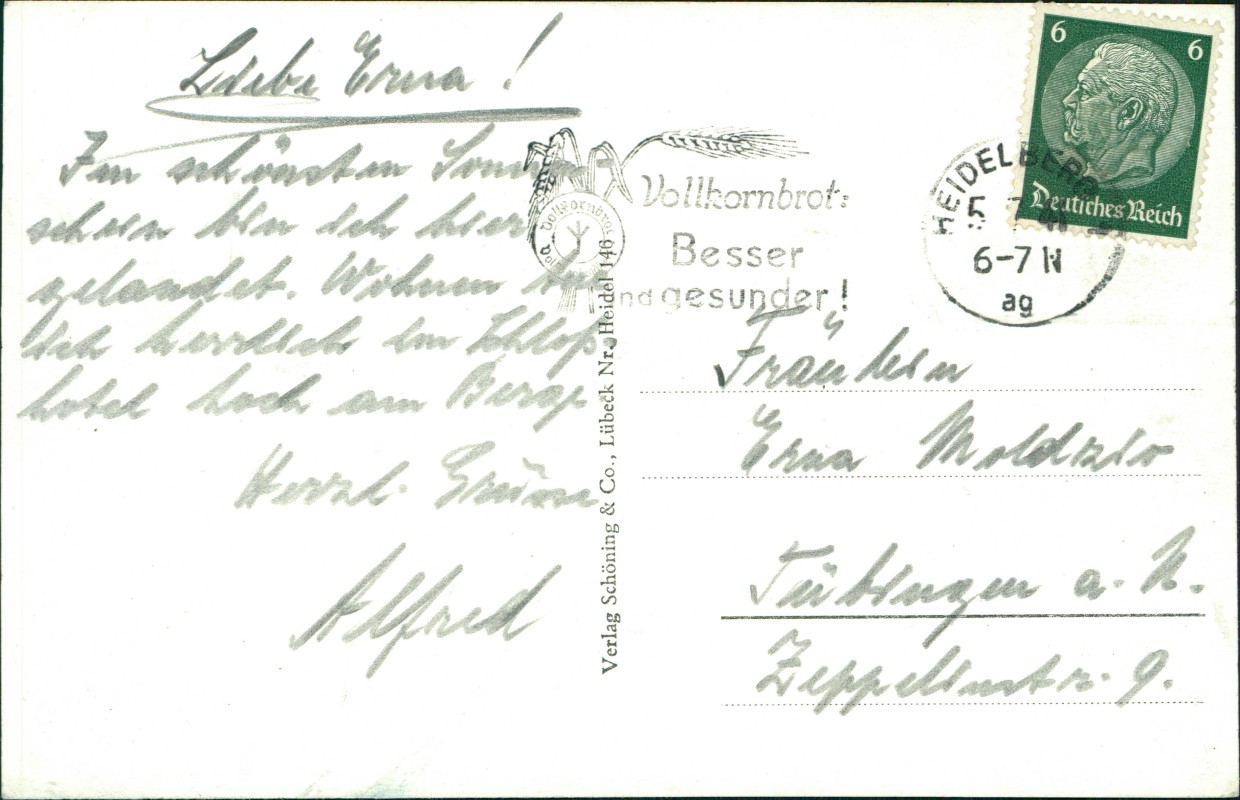 Liebe Erna!
Im schönsten Sonnen
schein bin ich hier
gelandet. Wohnen
herrlich im Schloß-
hotel hoch am Berge
Herzl. Grüsse
Alfred
Verlag Schöning & Co., Lübeck Nr. Heidel 146
Vollkornbrot
Vollkornbrot:
Besser
und gesünder!
6 6
Deutsches Reich
HEIDELBERG
5. 7. 41
6-7 N
ag
Fräulein
Erna
Tübingen a. N.
Zeppelinstr. 9.